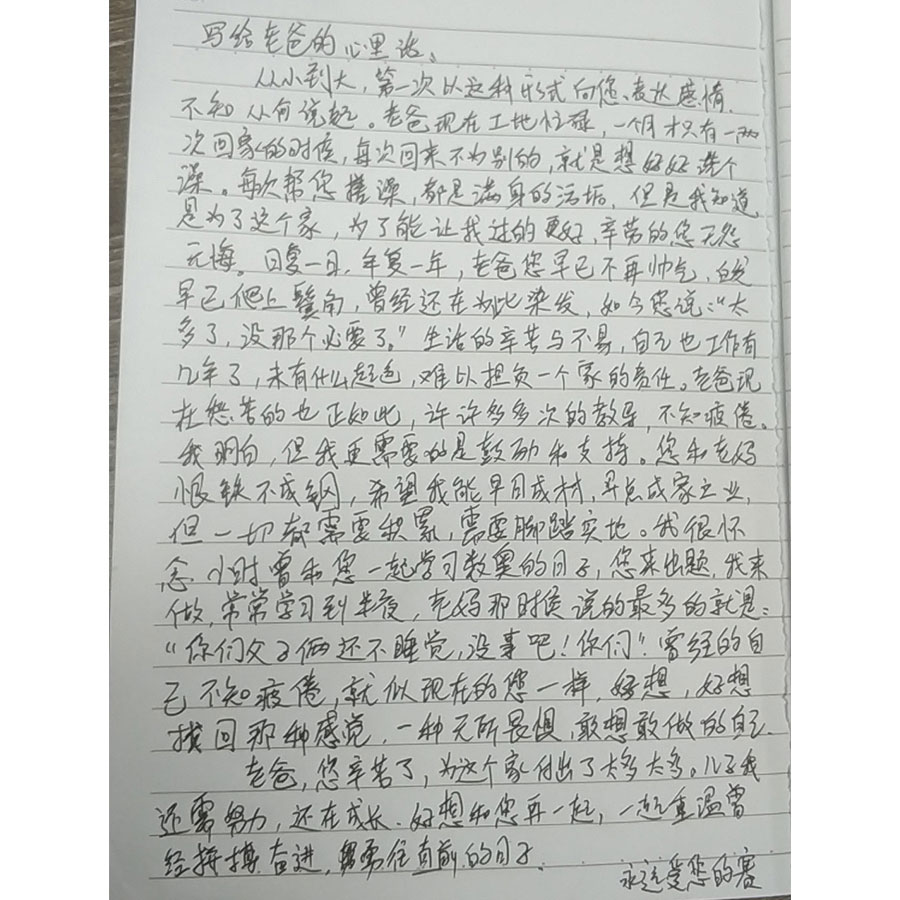 写给老爸的心里话、
从小到大，第一次以这种形式向您、表达感情、
不知从何说起。老爸现在工地忙碌，一个月才只有一两
次回家的时候，每次回来不为别的，就是想好好洗个
澡。每次帮您搓澡，都是满身的污垢，但是我知道，
是为了这个家，为了能让我过的更好，辛劳的您无怨
无悔。日复一日，年复一年，老爸您早已不再帅气，白发
早已爬上鬓角，曾经还在为此染发，如今您说：“太
多了，没那个必要了。”生活的辛苦与不易，自己也工作有
几年了，未有什么起色，难以担负一个家的责任。老爸现
在愁苦的也正如此，许许多多次的教导，不知疲倦。
我明白，但我更需要的是鼓励和支持。您和老妈
恨铁不成钢，希望我能早日成材，早点成家立业，
但一切都需要积累，需要脚踏实地。我很怀
念小时曾和您一起学习数奥的日子，您来出题，我来
做，常常学习到半夜，老妈那时候说的最多的就是：
“你们父子俩还不睡觉，没事吧！你们”曾经的自
己不知疲倦，就似现在的您一样，好想，好想
找回那种感觉，一种无所畏惧，敢想敢做的自己、
老爸，您辛苦了，为这个家付出了太多太多。儿子我
还需努力，还在成长、好想和您再一起，一起重温曾
经拼搏奋进，勇往直前的日子、
永远爱您的赛